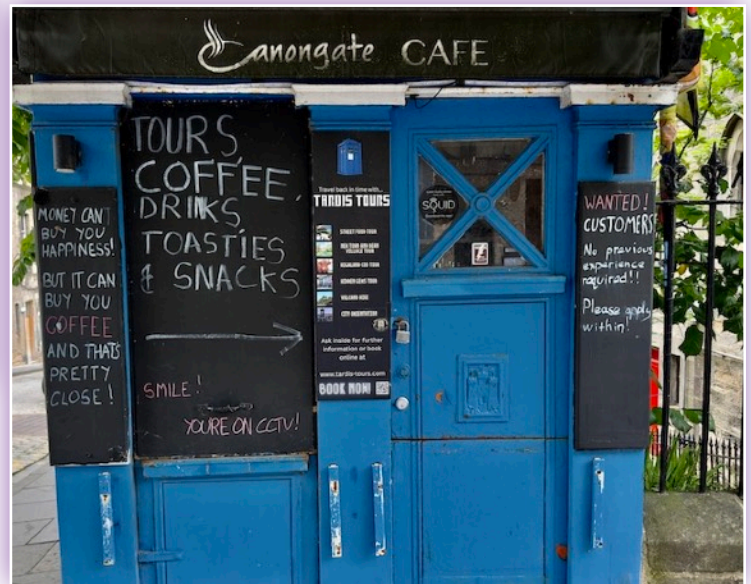 Canongate CAFE
MONEY CAN'T
BUY YOU
HAPPINESS!
BUT IT CAN
BUY YOU
COFFEE
AND THATS
PRETTY
CLOSE!
TOURS,
COFFEE,
DRINKS
TOASTIES
& SNACKS
SMILE!
YOURE ON CCTV!
Travel back in time with...
TARDIS TOURS
STREET FOOD TOUR
CITY ORIENTATION
Ask inside for further
information or book
online at
www.tardis-tours.com
BOOK NOW
SQUID
WANTED!
CUSTOMERS
No previous
experience
required!!
Please apply
within!